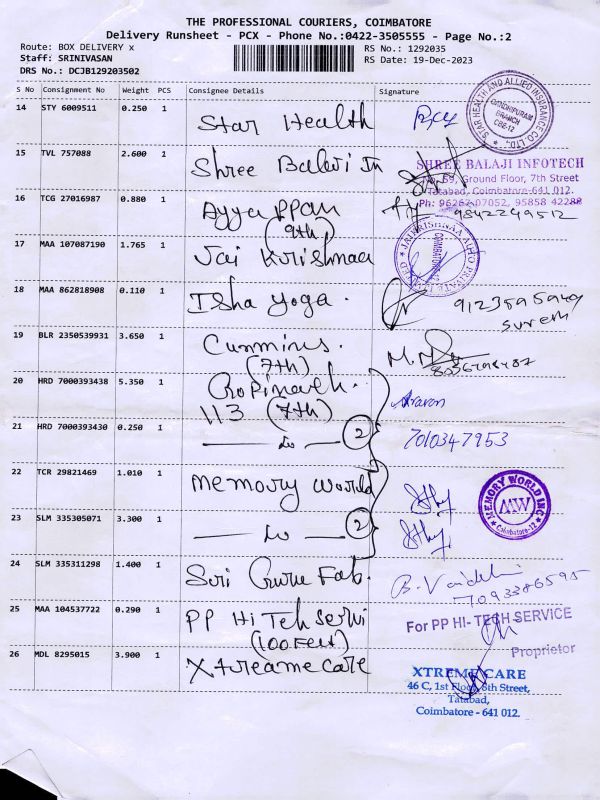 THE PROFESSIONAL COURIERS, COIMBATORE
Delivery Runsheet - PCX - Phone No.:0422-3505555 - Page No.:2
Route: BOX DELIVERY x
RS No.: 1292035
Staff: SRINIVASAN
RS Date: 19-Dec-2023
DRS No.: DCJB129203502
S No Consignment No Weight PCS Consignee Details Signature
14 STY 6009511 0.250 1 Star Health
STAR HEALTH AND ALLIED INSURANCE CO.LTD.
GANDHIPURAM
BRANCH
CBE-12
15 TVL 757088 2.600 1 Shree Balaji In
SHREE BALAJI INFOTECH
No. 59, Ground Floor, 7th Street
Tatabad, Coimbatore-641 012.
Ph: 96262 07052, 95858 42288
16 TCG 27016987 0.880 1 Ayyappan 9842249512
(9th)
17 MAA 107087190 1.765 1 Jai Krishnaa
JAI KRISHNAA AUTO PRIVATE LIMITED
COIMBATORE-12
18 MAA 862818908 0.110 1 Isha Yoga.
19 BLR 2350539931 3.650 1 Cummins.
(7th)
20 HRD 7000393438 5.350 1 Gopinath.
113 (7th)
21 HRD 7000393430 0.250 1 Do 2 7010347953
22 TCR 29821469 1.010 1 Memory World
MEMORY WORLD INC
MW
Coimbatore-12
23 SLM 335305071 3.300 1 Do 2
24 SLM 335311298 1.400 1 Sri Guru Fab. 7093386595
25 MAA 104537722 0.290 1 PP Hi Teh Servi
(100 Feet)
For PP HI-TECH SERVICE
Proprietor
26 MDL 8295015 3.900 1 Xtreame care
XTREME CARE
46 C, 1st Floor, 8th Street,
Tatabad,
Coimbatore - 641 012.